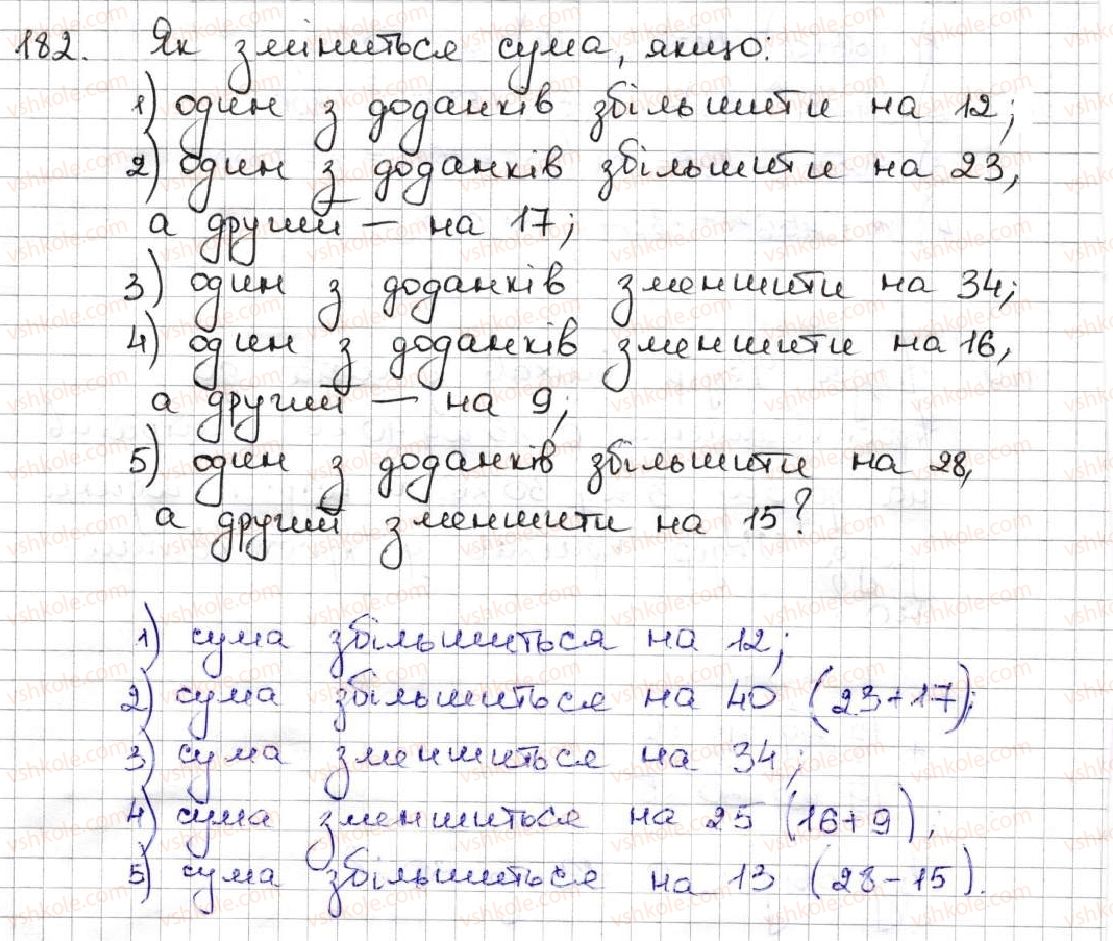 182. Як зміниться сума, якщо:
1) один з доданків збільшити на 12;
2) один з доданків збільшити на 23,
а другий — на 17;
3) один з доданків зменшити на 34;
4) один з доданків зменшити на 16,
а другий — на 9;
5) один з доданків збільшити на 28,
а другий зменшити на 15?
1) сума збільшиться на 12;
2) сума збільшиться на 40 (23+17);
3) сума зменшиться на 34;
4) сума зменшиться на 25 (16+9),
5) сума збільшиться на 13 (28-15).